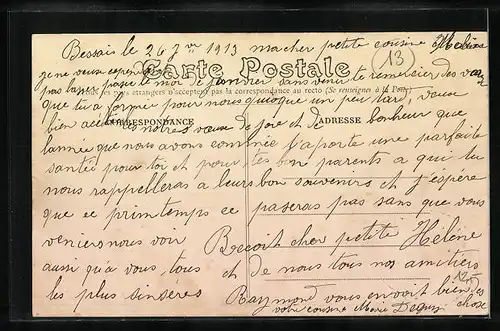 Bessais le 26 Jer 1913 ma cher petite cousine Hélène
13
je ne veux cependant
pas laisser passer le moi de Janvier sans venir te remersier des vœux
Carte Postale
pays étrangers n'acceptent pas la correspondance au recto (Se renseigner à la Poste)
que tu a formé pour nous quoique un peu tard, veux
CORRESPONDANCE
ADRESSE
bien accepter notres vœux de joie et de bonheur que
l'année que nous avons commencé t'aporte une parfaite
santée pour toi et pour tes bon parents a qui tu
nous rappelleras a leurs bon souvenirs et j'espère
que ce printemps ce paseras pas sans que vous
veniers nous voir Recoit cher petite Hélène
aussi qu'a vous, tous et de nous tous nos amitiers
les plus sinsères Raymond vous envoit bien
votre cousine Marie
chose